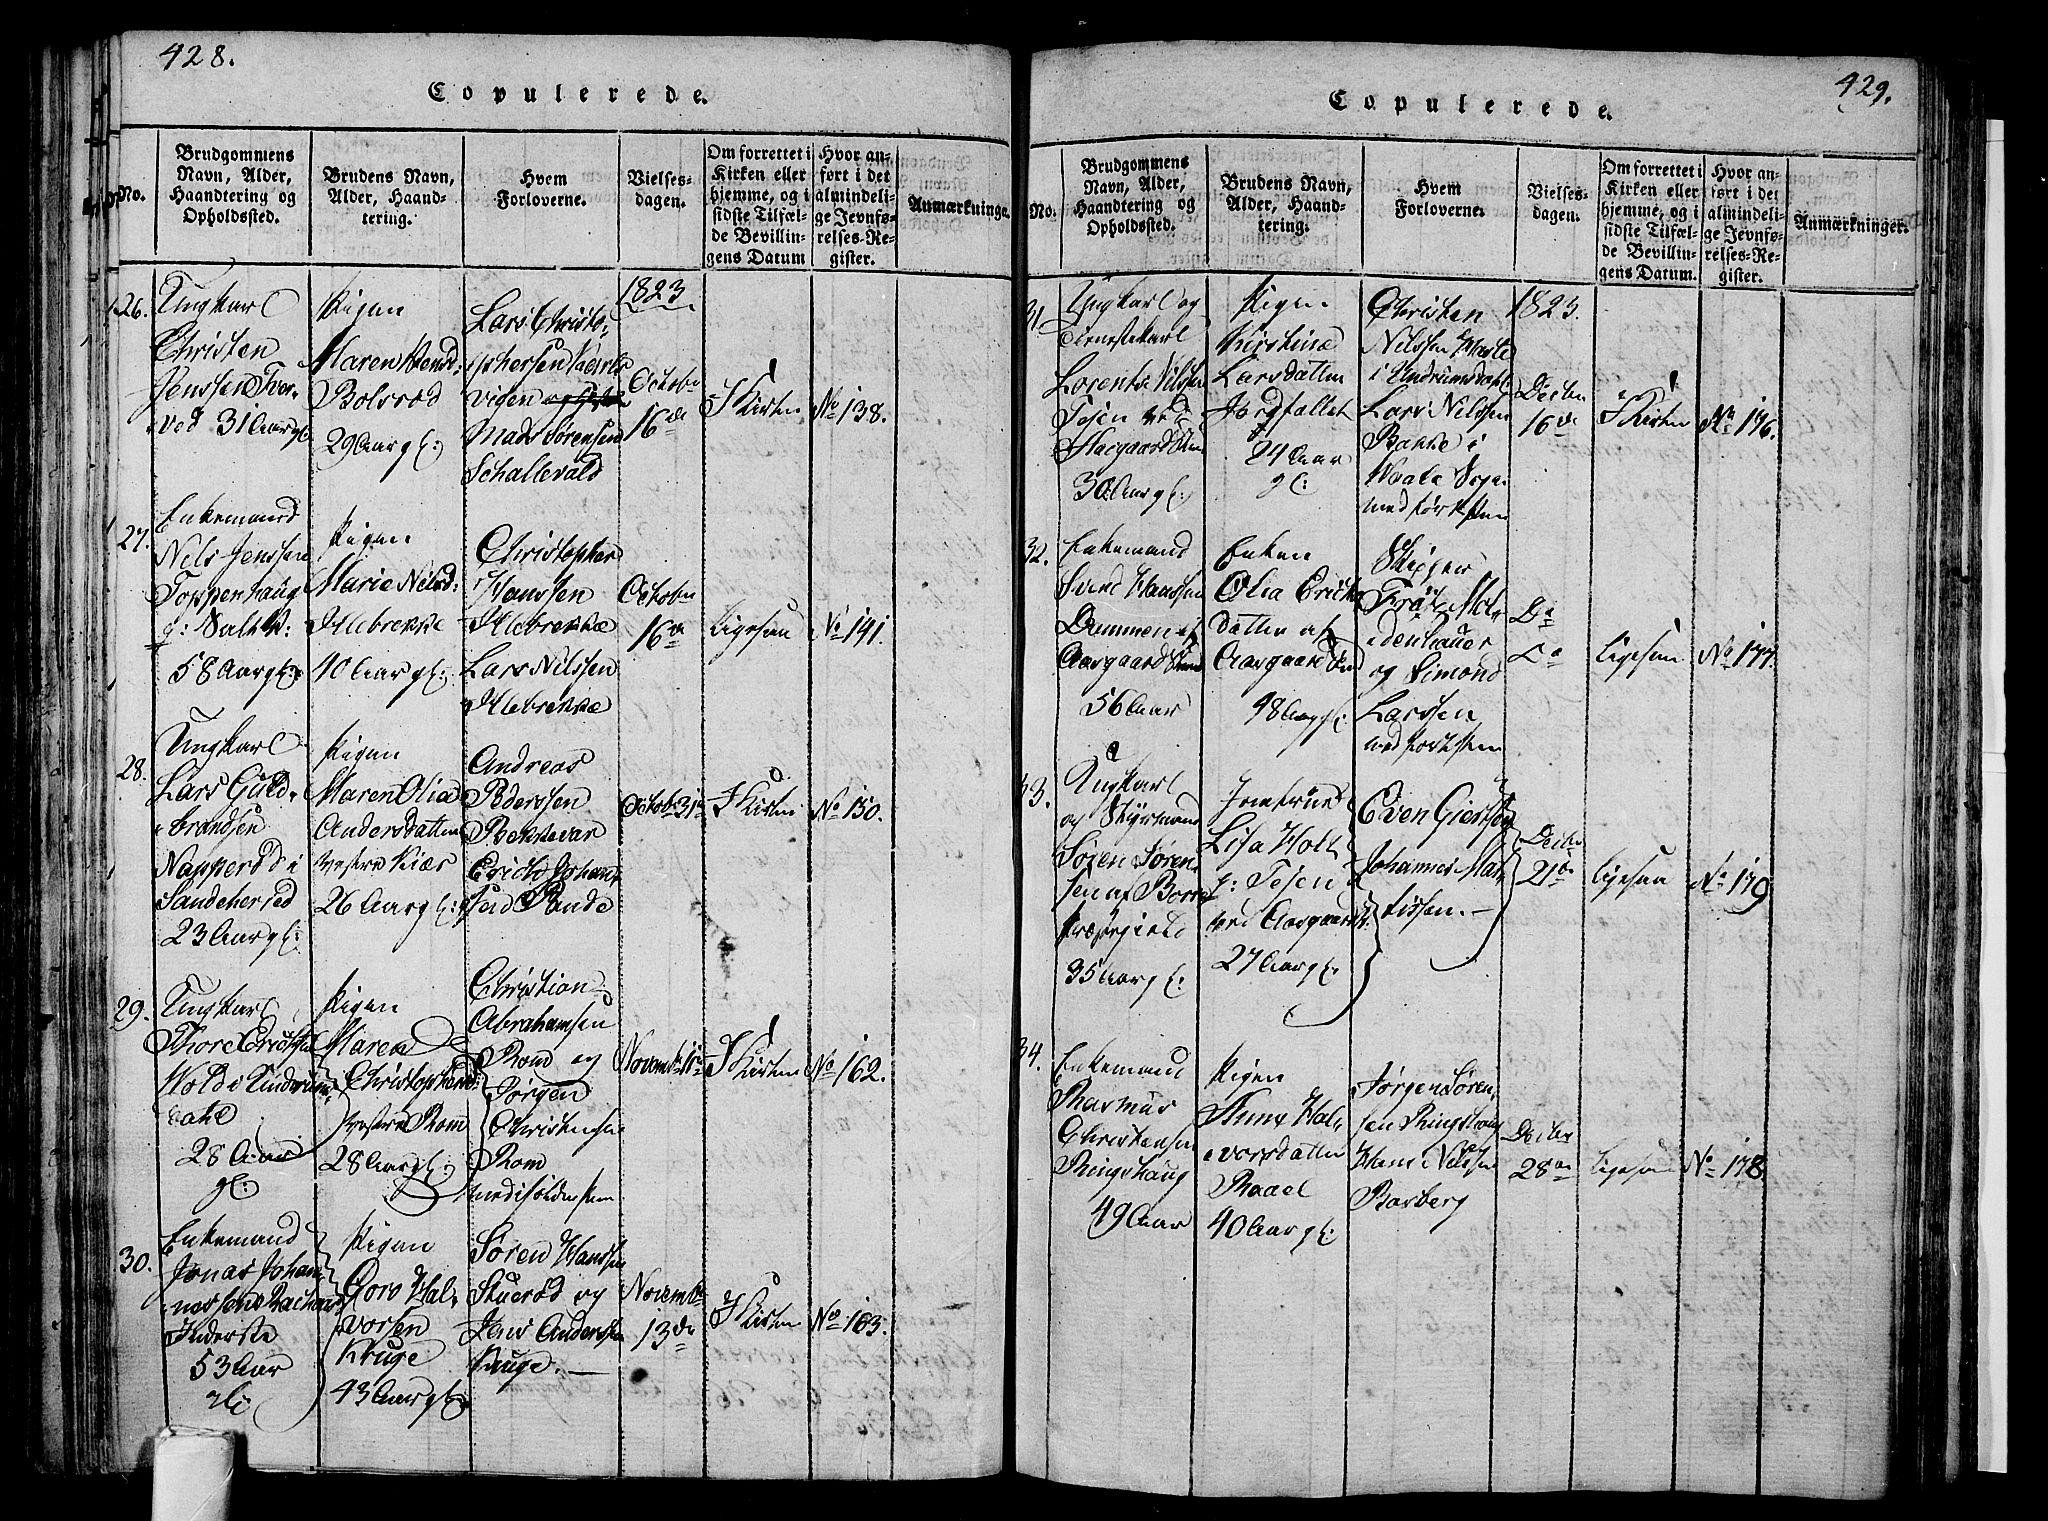 428.
Copulerede.
No.
Brudgommens
Navn, Alder,
Haandtering og
Opholdssted.
Brudens Navn,
Alder, Haand-
tering.
Hvem
Forloverne.
Vielses-
dagen.
Om forrettet i
Kirken eller
hjemme, og i
sidste Tilfæl-
de Bevillin-
gens Datum
Hvor an-
ført i det
almindeli-
ge Jevnfø-
relses-Re-
gister.
Anmærkninger
1823.
26.
Ungkarl
Christen
Jenssen
ved 31 Aar gl:
Pigen
Maren
Bolsrød
29 Aar gl:
Lars Christo-
phersen
vigen
Mads Sørensen
Schallevald
October
16de
I Kirken
No 138.
27.
Enkemand
Nils Jenssen
Toppenhaug
58 Aar gl:
Pigen
Marie Nilsd:
Ilebrekke
40 Aar gl:
Christopher
Hanssen
Ilebrekke
Lars Nilssen
Ilebrekke
October
16de
Ligesaa
No 141.
28.
Ungkarl
Lars Guld-
brandsen
Napperød i
Sandeherred
23 Aar gl:
Pigen
Maren Olia
Andersdatter
vestre Kiær
26 Aar gl:
Andreas
Pederssen
Bekkevar
Erich Johan-
sen Rande
Octob: 31te
I Kirken
No 150.
29.
Ungkarl
Thore Erichsen
Wold i Undrums-
dahl
28 Aar
gl:
Pigen
Maren
Christophersd:
vestre Rom
28 Aar gl:
Christian
Abrahamsen
Rom og
Jørgen
Christensen
Rom
Novemb: 11te
I Kirken
No 162.
30.
Enkemand
Jonas Johan-
nessen
Inderste
53 Aar
gl:
Pigen
Goro Hal-
vorsen
Kruge
43 Aar gl:
Søren Hanssen
Stuerød og
Jens Anderssen
Kruge.
Novemb:
13de
I Kirken
No 163.
429.
Copulerede.
No.
Brudgommens
Navn, Alder,
Haandtering og
Opholdssted.
Brudens Navn,
Alder, Haand-
tering.
Hvem
Forloverne.
Vielses-
dagen.
Om forrettet i
Kirken eller
hjemme, og i
sidste Tilfæl-
de Bevillin-
gens Datum.
Hvor an-
ført i det
almindeli-
ge Jevnfø-
relses-Re-
gister.
Anmærkninger.
1823.
31.
Ungkarl og
Tienestekarl
Lorents Nilssen
30 Aar gl:
Pigen
Kirstine
Larsdatter
Jordfaldet
24 Aar
gl:
Christen
Nilssen
i Undrumsdahl
Lars Nilssen
Bakke i
Decbr
16de
I Kirken
No 176.
32.
Enkemand
Svend Hanssen
Dammen af
56 Aar
Enken
Olia Erichs-
datter af
48 Aar gl:
Skipper
og Simond
Larssen
Do
Do
Ligesaa
No 177.
33.
Ungkarl
og Styrmand
Søren Søren-
sen af Borre
Præstegield
35 Aar gl:
Jomfrue
Lisa Holt
27 Aar gl:
Even Giertsen
Johannes Mat-
tissen.
Decbr
21de
Ligesaa
No 179
34.
Enkemand
Rasmus
Christensen
Ringshaug
49 Aar
Pigen
Anne Hal-
vorsdatter
Raael
40 Aar gl:
Jørgen Søren-
sen Ringshaug
Hans Nilssen
Basberg
Decbr
28de
Ligesaa
No 178.